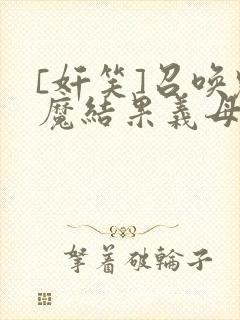 [奸笑]召唤
魔結果義母
拏着破輪子